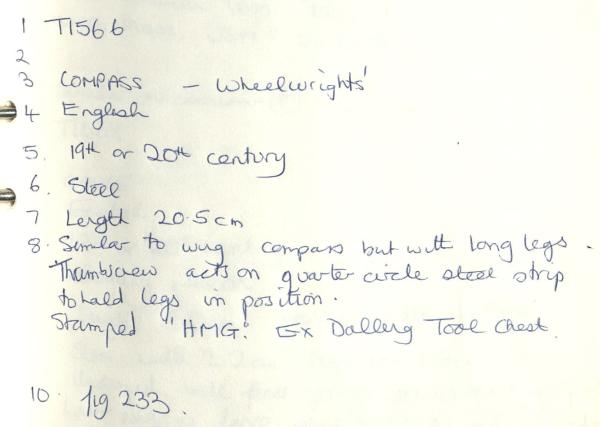 1 T1566
2
3 COMPASS - Wheelwrights'
4 English
5. 19th or 20th century
6. Steel
7 Length 20.5cm
8. Similar to wing compass but with long legs.
Thumbscrew acts on quarter circle steel strip
to hold legs in position.
Stamped "HMG". Ex Tool Chest.
10. fig 233.